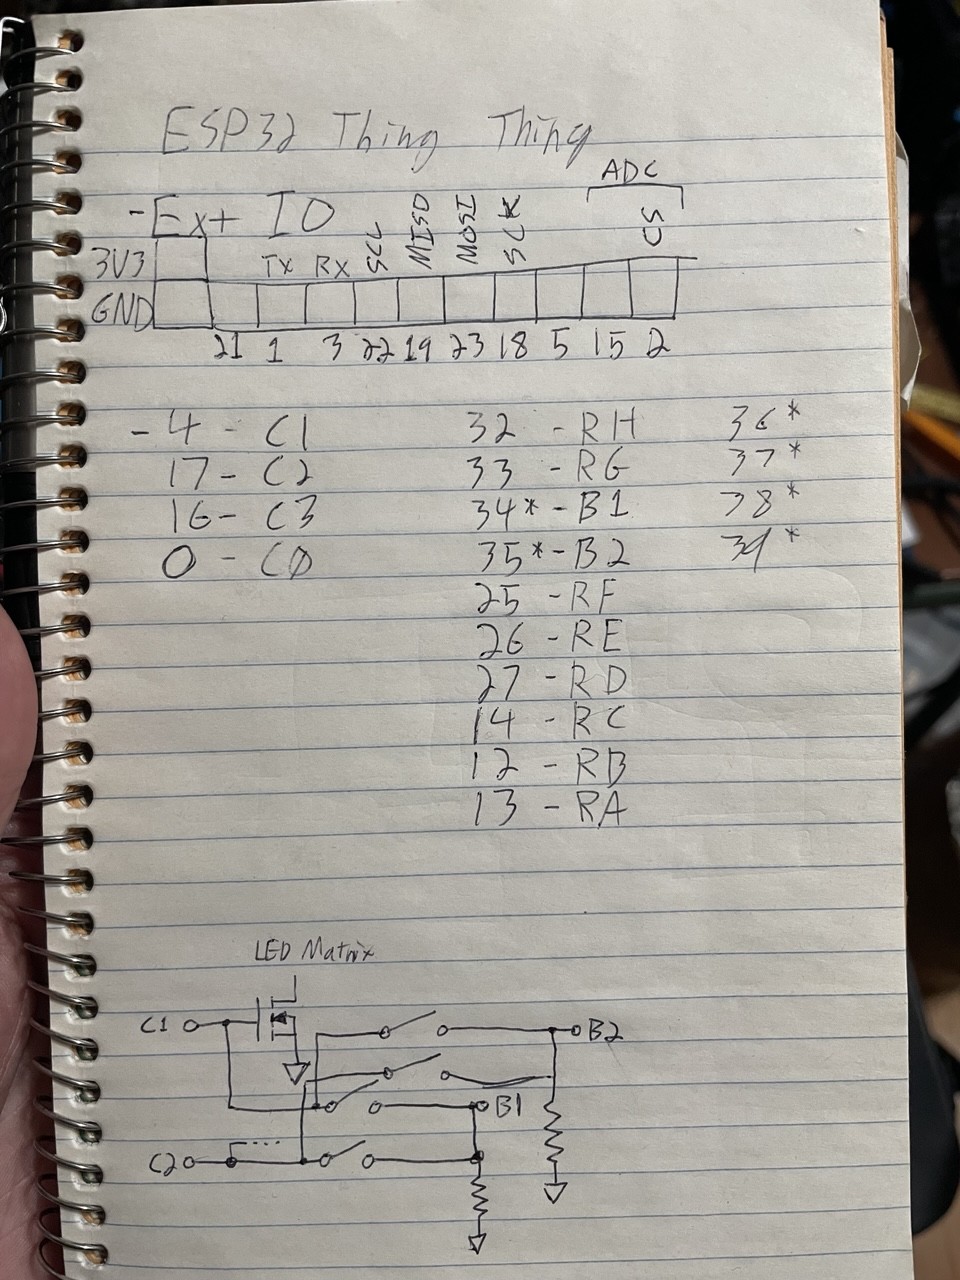 ESP32 Thing Thing
ADC
- Ext IO
TX RX SCL MISO MOSI SCK CS
3V3
GND
21 1 3 22 19 23 18 5 15 2
- 4 - C1 32 - RH 36*
17 - C2 33 - RG 37*
16 - C3 34* - B1 38*
0 - C0 35* - B2 39*
25 - RF
26 - RE
27 - RD
14 - RC
12 - RB
13 - RA
LED Matrix
C1 B2
B1
C2